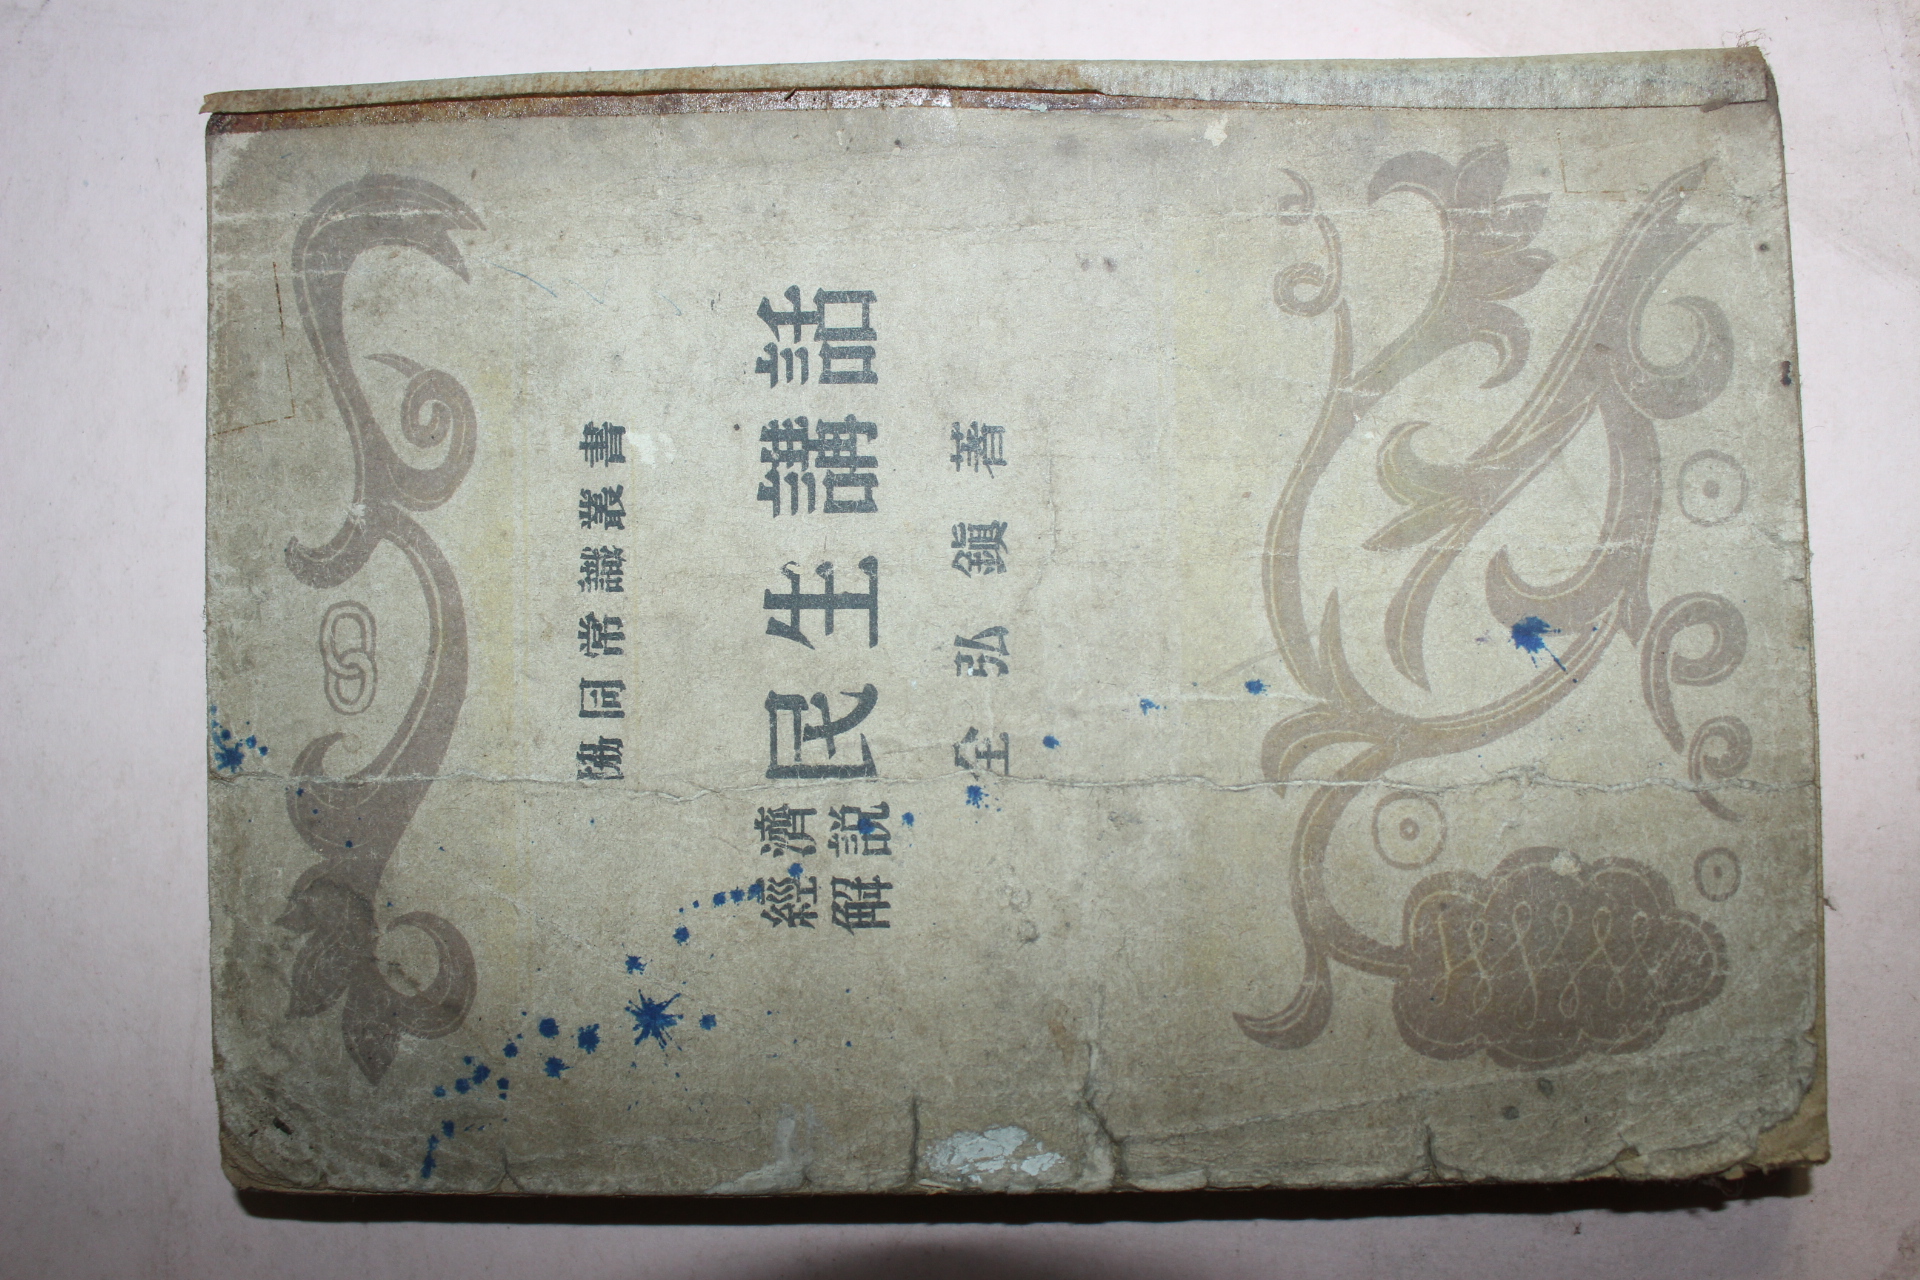 協同常識叢書
經濟
解説
民生講話
全弘鎭 著